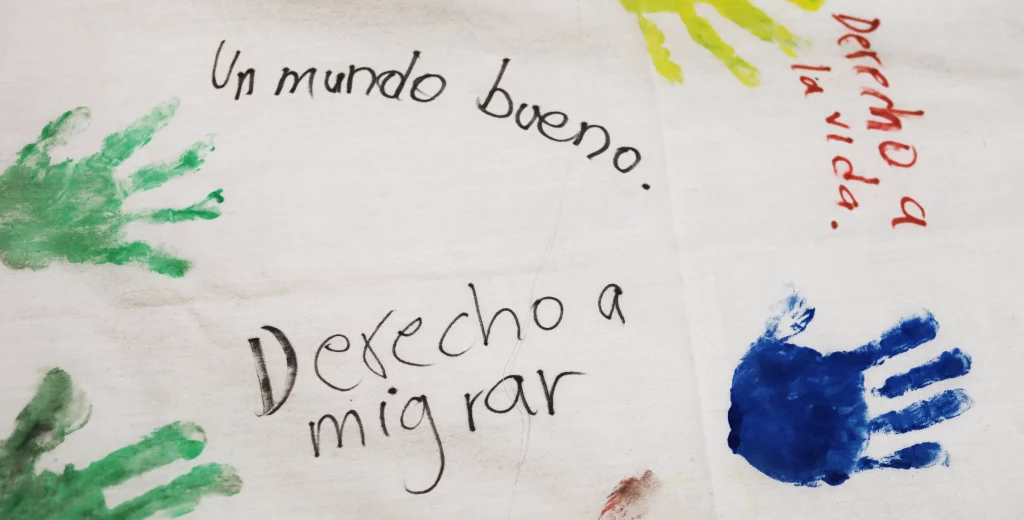 Un mundo bueno.
Derecho a
la vida.
Derecho a
migrar